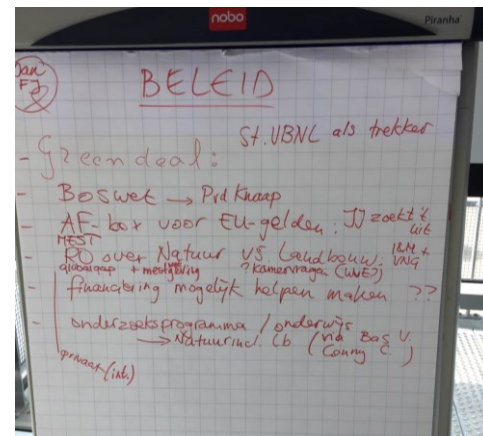 nobo
Piranha
Jan
FJ
BELEID
St. VBNL als trekker
- Greendeal:
- Boswet → Prd Knaap
- AF-box voor EU-gelden: JJ zoekt 't
uit
MEST
- RO over Natuur vs. Landbouw. I&M +
VNG
+ mestgeving ? kamervragen
- financiering mogelijk helpen maken ??
- onderzoeksprogramma / onderwijs
→ Natuurincl. Lb (via Bas V.
Conny C.)
privaat (int.)